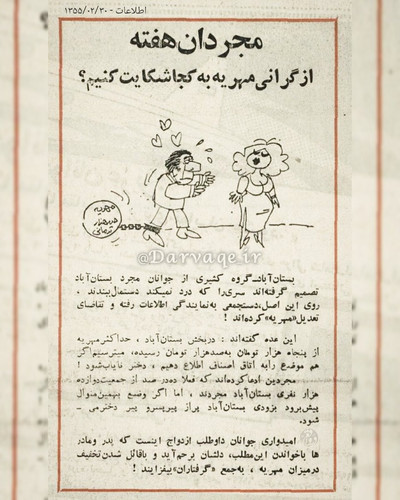 اطلاعات - ۱۳۵۵/۰۲/۳۰
مجردان هفته
از گرانی مهریه به کجا شکایت کنیم؟
مهریه
صد هزار
تومانی
@Darvaqe.ir
بستان‌آباد ـ گروه کثیری از جوانان مجرد بستان‌آباد
تصمیم گرفته‌اند سری را که درد نمیکند دستمال ببندند ، 
روی این اصل، دستجمعی به نمایندگی اطلاعات رفته و تقاضای
تعدیل «مهریه» کرده‌اند !
این عده گفته‌اند : در بخش بستان‌آباد ، حداکثر مهریه
از پنجاه هزار تومان به صدهزار تومان رسیده، میترسیم اگر
هم موضوع را به اتاق اصناف اطلاع دهیم ، دختر نایاب شود !
مجردین ادعا کرده‌اند که فعلا ده درصد از جمعیت دوازده
هزار نفری بستان‌آباد مجردند ، اما اگر وضع بهمین منوال
پیش برود بزودی بستان‌آباد پر از پیرپسر و پیر دختر می ـ
شود.
امیدواری جوانان داوطلب ازدواج اینست که پدر و مادرها
با خواندن این مطلب، دلشان برحم آید و با قائل شدن تخفیف
در میزان مهریه ، به جمع «گرفتاران» بیفزایند !